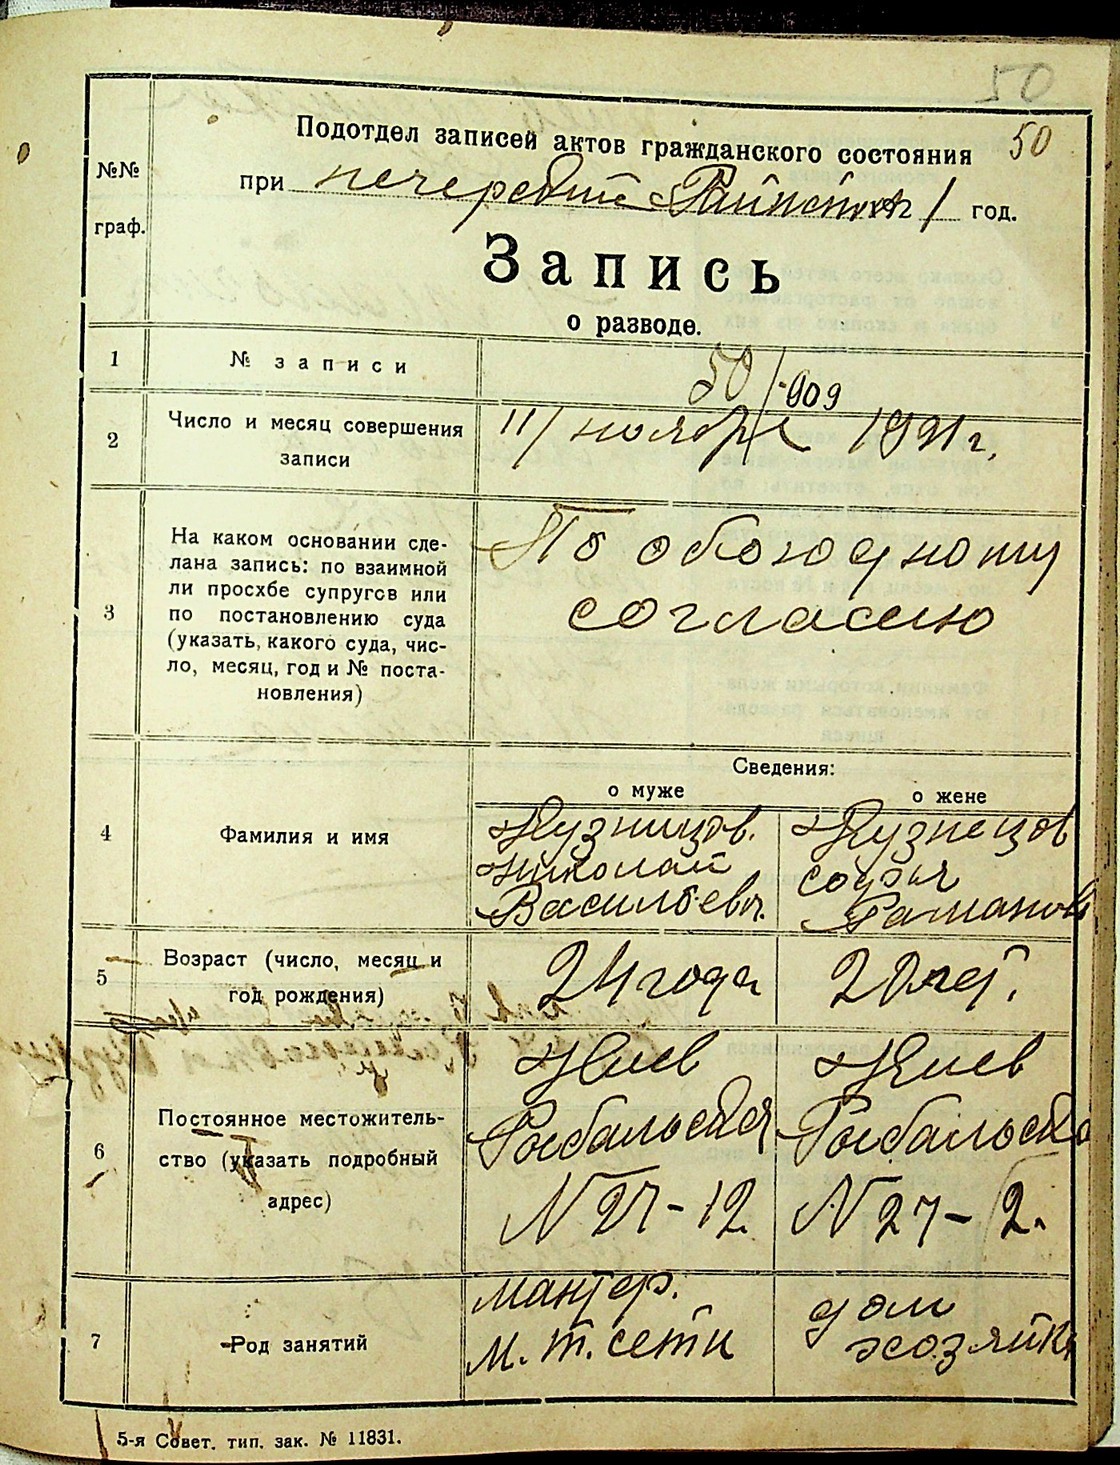 50
50
№№
граф.
Подотдел записей актов гражданского состояния
при печерский год.
Запись
о разводе.
1
№ записи
50/-909
2
Число и месяц совершения
записи
11/ ноября 1921 г.
3
На каком основании сде-
лана запись: по взаимной
ли просхбе супругов или
по постановлению суда
(указать, какого суда, чис-
ло, месяц, год и № поста-
новления)
По обоюдному
согласию
Сведения:
о муже
о жене
4
Фамилия и имя
Кузницов.
Николай
Васильевич.
Кузнецов
софья
Рамановн
5
Возраст (число, месяц и
год рождения)
24 года
20 лет.
6
Постоянное местожитель-
ство (указать подробный
адрес)
Киев
Рыбальская
N 27-12
Киев
Рыбальска
N 27-2.
7
Род занятий
мантер.
м. т. сети
дом
хозяйка
5-я Совет. тип. зак. № 11831.